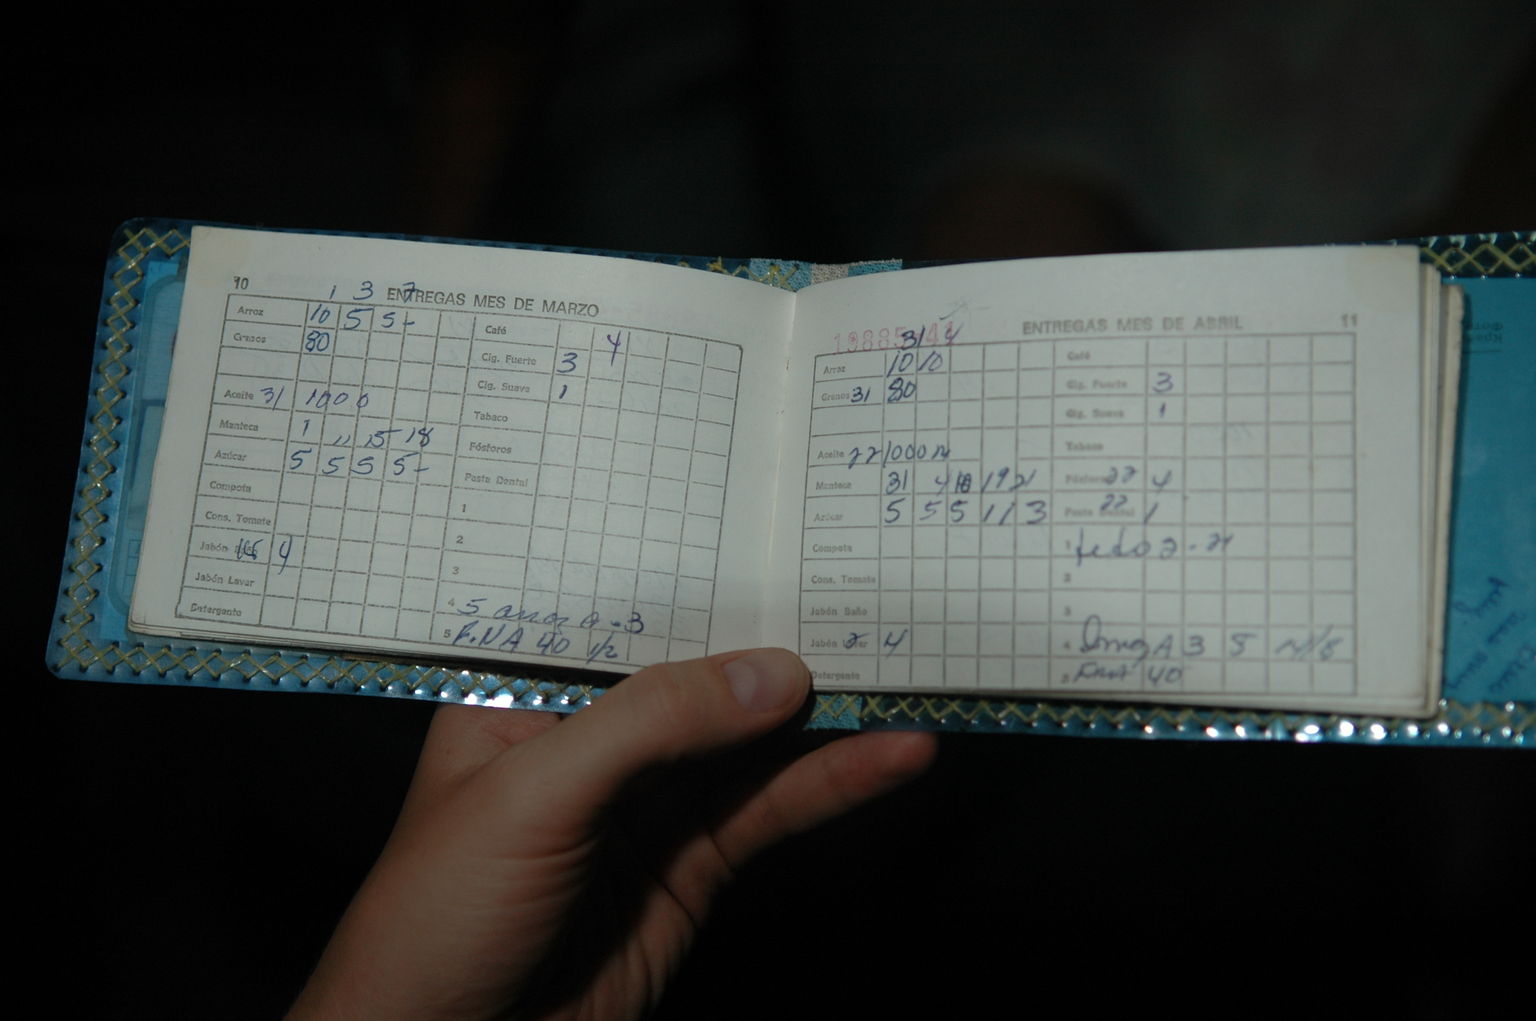 10
1 3 7
ENTREGAS MES DE MARZO
Arroz 10 5 5-
Granos 80
Aceite 31 1000
Manteca 1 11 15 18
Azúcar 5 5 5 5-
Compota
Cons. Tomate
Jabón 4
Jabón Lavar
Detergente
Café 4
Cig. Fuerte 3
Cig. Suave 1
Tabaco
Fósforos
Pasta Dental
1
2
3
4 5
5 40 1/2
ENTREGAS MES DE ABRIL 11
31 4
Arroz 10 10
Granos 31 80
Aceite 22 1000
Manteca 31 4 19 21
Azúcar 5 5 5 1 1 3
Compota
Cons. Tomate
Jabón Baño
Jabón Lavar 4
Detergente
Café
Cig. Fuerte 3
Cig. Suave 1
Tabaco
Fósforos 22 4
Pasta Dental 22 1
1
2
3
4 3 5
5 40